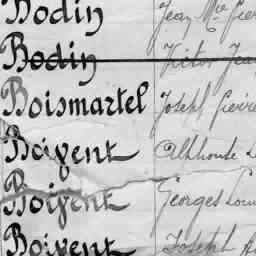 Bodin Jean Mie Pierre
Bodin Victor Jean
Boismartel Joseph Pierre
Boivent Alphonse L
Boivent Georges Loui
Boivent Joseph